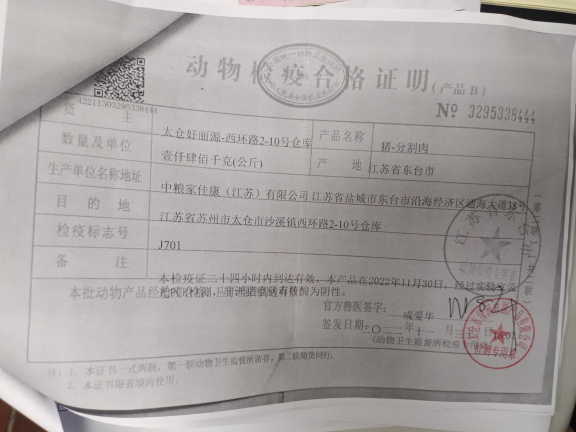 动物检疫合格证明(产品B)
42211303295338444
№ 3295338444
货 主 太仓好丽源-西环路2-10号仓库 产品名称 猪-分割肉
数量及单位 壹仟肆佰千克(公斤) 产 地 江苏省东台市
生产单位名称地址 中粮家佳康(江苏)有限公司 江苏省盐城市东台市沿海经济区通海大道38号
目 的 地 江苏省苏州市太仓市沙溪镇西环路2-10号仓库
检疫标志号 J701
备 注 本检疫证二十四小时内到达有效。本产品在2022年11月30日,
本批动物产品经
官方兽医签字: 成爱华
签发日期:二〇二二年十一月三十日
(动物卫生监督所检疫专用章)
检测专用章
注:1、本证书一式两联,第一联动物卫生监督所留存,第二联随货同行。
2、本证书限省境内使用。